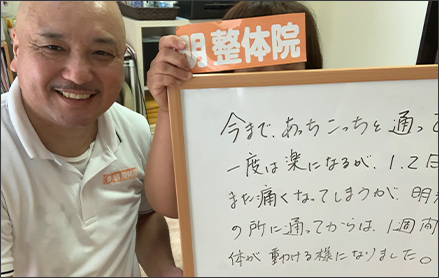 明整体院
今まで、あっちこっちと通って
一度は楽になるが、1.2日
また痛くなってしまうが、明
の所に通ってからは、1週間
体が動ける様になりました。
整体院